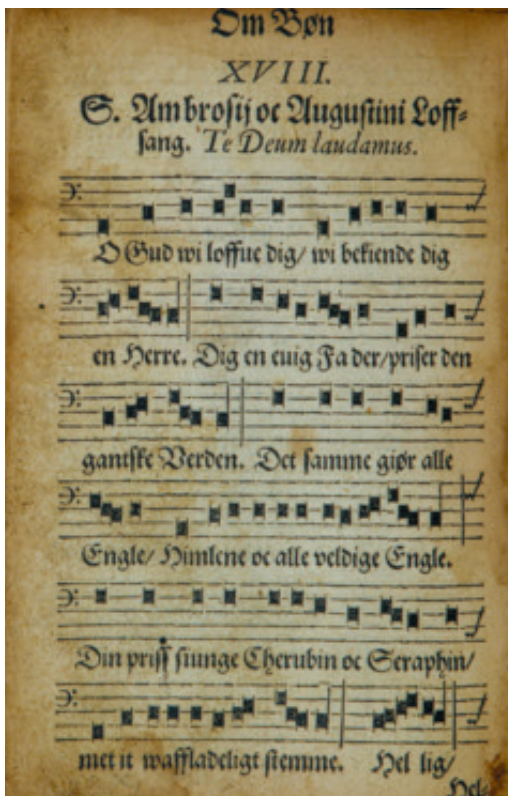 Om Bøn
XVIII.
S. Ambrosij oc Augustini Loff-
sang. Te Deum laudamus.
O Gud wi loffue dig/ wi bekiende dig
en Herre. Dig en euig Fa der/priser den
gantske Verden. Det samme giør alle
Engle/ Himlene oc alle veldige Engle.
Din priss siunge Cherubin oc Seraphin/
met it waffladeligt stemme. Hel lig/
Hel-